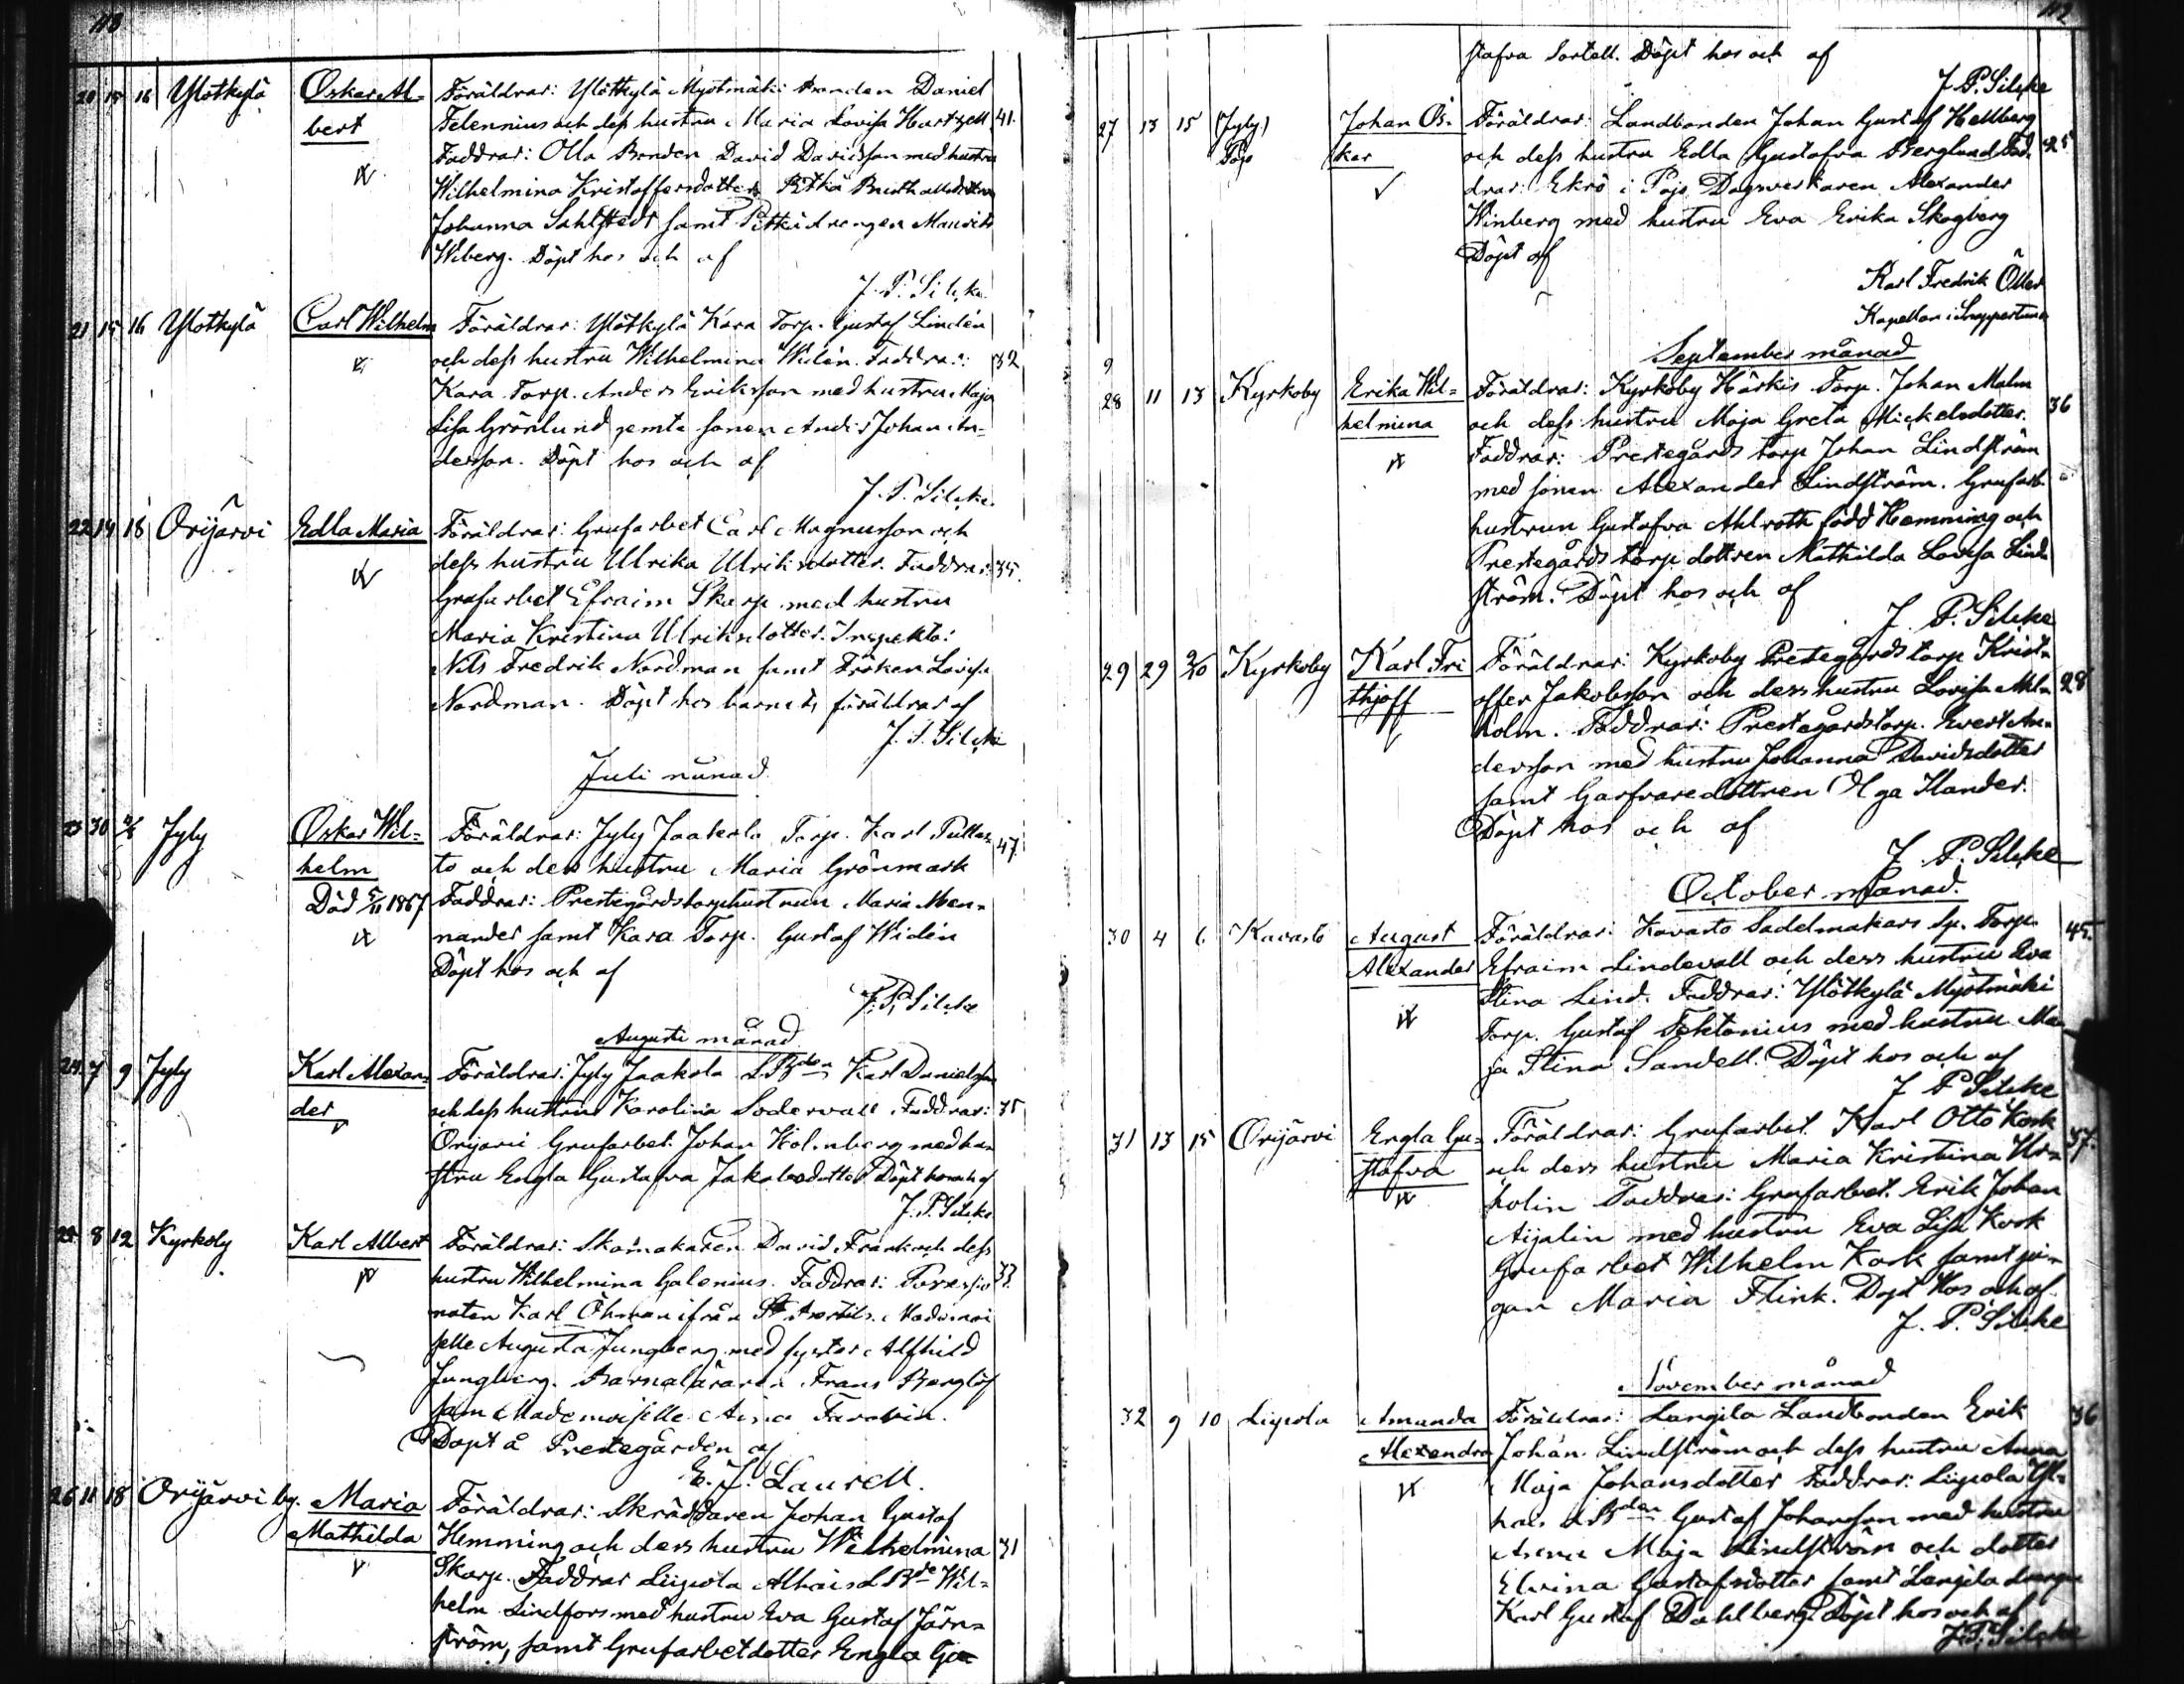 113
20 15 16 Ylötkylä Oskar Al- Föräldrar: Ylötkylä Myötmäki bonden Daniel
bert Telennius och dess hustru Maria Lovisa Hartzell 41.
Faddrar: Olla Bonden David Davidsson med hustru
Wilhelmina Kristoffersdotter, Pitkä
Johanna Sahlstedt samt Pitkä drengen Maurits
Wiberg. Döpt hos och af
J. P. Silcke.
21 15 16 Ylötkylä Carl Wilhelm Föräldrar: Ylötkylä Kara Torp. Gustaf Lindén
och dess hustru Wilhelmina Widén. Faddrar: 32
Kara Torp. Anders Eriksson med hustru Maja
Lisa Grönlund jemte sonen Anders Johan An-
dersson. Döpt hos och af
J. P. Silcke.
22 14 18 Orijärvi Edla Maria Föräldrar: Grufarbet Carl Magnusson och
dess hustru Ulrika Ulriksdotter. Faddrar: 35.
Grufarbet Efraim Skarp med hustru
Maria Kristina Ulriksdotter. Inspektor
Nils Fredrik Nordman samt Fröken Lovisa
Nordman. Döpt hos barnets föräldrar af
J. P. Silcke
Juli månad.
23 30 Jyly Oskar Wil- Föräldrar: Jyly Jaakola Torp. Karl Pullas-
helm to och dess hustru Maria Grönmark 47.
Död 5/11 1867 Faddrar: Prestegårdstorphustrun Maria Men-
nander samt Kara Torp. Gustaf Widén
Döpt hos och af
J. P. Silcke
Augusti månad
24 7 9 Jyly Karl Alexan- Föräldrar: Jyly Jaakola L.Bden Karl Danielsson
der och dess hustru Karolina Södervall. Faddrar: 35
Orijärvi Grufarbet. Johan Holmberg med hu-
stru Engla Gustafva Jakobsdotter Döpt hos och af
J. P. Silcke
25 8 12 Kyrkoby Karl Albert Föräldrar: Skomakaren David Frank och dess
hustru Wilhelmina Galenius. Faddrar: 33.
Karl Öhman ifrån St Bertils. Mademoi
selle Augusta Jungberg med syster Alfhild
Jungberg. Barnaläraren Frans Berglöf
sam Mademoiselle
Döpt å Prestegården af
E. J. Laurell.
26 11 18 Orijärvi by. Maria Föräldrar: Skräddaren Johan Gustaf
Mathilda Hemming och dess hustru Wilhelmina 31
Skarp. Faddrar Liipola Alhais L Bde Wil-
helm Lindfors med hustru Eva Gustaf Järn-
ström, samt Grufarbetdotter Engla Gu-
112
stafva Sortell. Döpt hos och af
J. P. Silcke
27 13 15 (Jyly) Johan Os- Föräldrar: Landbonden Johan Gustaf Hellberg
Pojo kar och dess hustru Edla Gustafva Berglund. Fad- 25
drar: Ekrö i Pojo Dagsverkaren Alexander
Winberg med hustru Eva Erika Skogberg
Döpt af
Karl Fredrik
Kapellan i Snappertuna
September månad
9
28 11 13 Kyrkoby Erika Wil- Föräldrar: Kyrkoby Härkis Torp. Johan Malm
helmina och dess hustru Maja Greta Mickelsdotter. 36
Faddrar: Prestegårds torp Johan Lindström
med sonen Alexander Lindström. Grufarb.
hustrun Gustafva Ahlroth född Hemming och
Prestegårds torp dottren Mathilda Lovisa Lind
ström. Döpt hos och af
J. P. Silcke
29 29 Kyrkoby Karl Fri Föräldrar: Kyrkoby Prestegårdstorp Krist-
thjoff offer Jakobsson och dess hustru Lovisa Ahl- 28
holm. Faddrar: Prestegårdstorp. Evert An-
dersson med hustru Johanna Davidsdotter
samt Garfvaredottren Olga Ilander.
Döpt hos och af
J. P. Silcke
October månad.
30 4 6 Kavasto August Föräldrar: Kavasto Sadelmakars Sp. Torp. 45.
Alexander Efraim Lindevall och dess hustru Eva
Stina Lind. Faddrar: Ylötkylä Myötmäki
Torp. Gustaf Tektonius med hustru Ma
ja Stina Sandell. Döpt hos och af
J P Silcke
31 13 15 Orijärvi Engla Gu- Föräldrar: Grufarbet. Karl Otto Kork 37.
stafva och dess hustru Maria Kristina Ur-
holin Faddrar: Grufarbet. Erik Johan
Aijalin med hustru Eva Lisa Kork
Grufarbet Wilhelm Kork samt pi-
gan Maria Flink. Döpt Hos och af
J. P. Silcke
November månad
32 9 10 Liipola Amanda Föräldrar: Langila Landbonden Erik 36
Alexandra Johan Lindström och dess hustru Anna
Maja Johansdotter Faddrar: Liipola Yl-
hais LBden Gustaf Johansson med hustru
Anna Maja Lindström och dotter
Elvina Gustafsdotter samt Långila drengen
Karl Gustaf Dahlberg. Döpt hos och af
J. P. Silcke